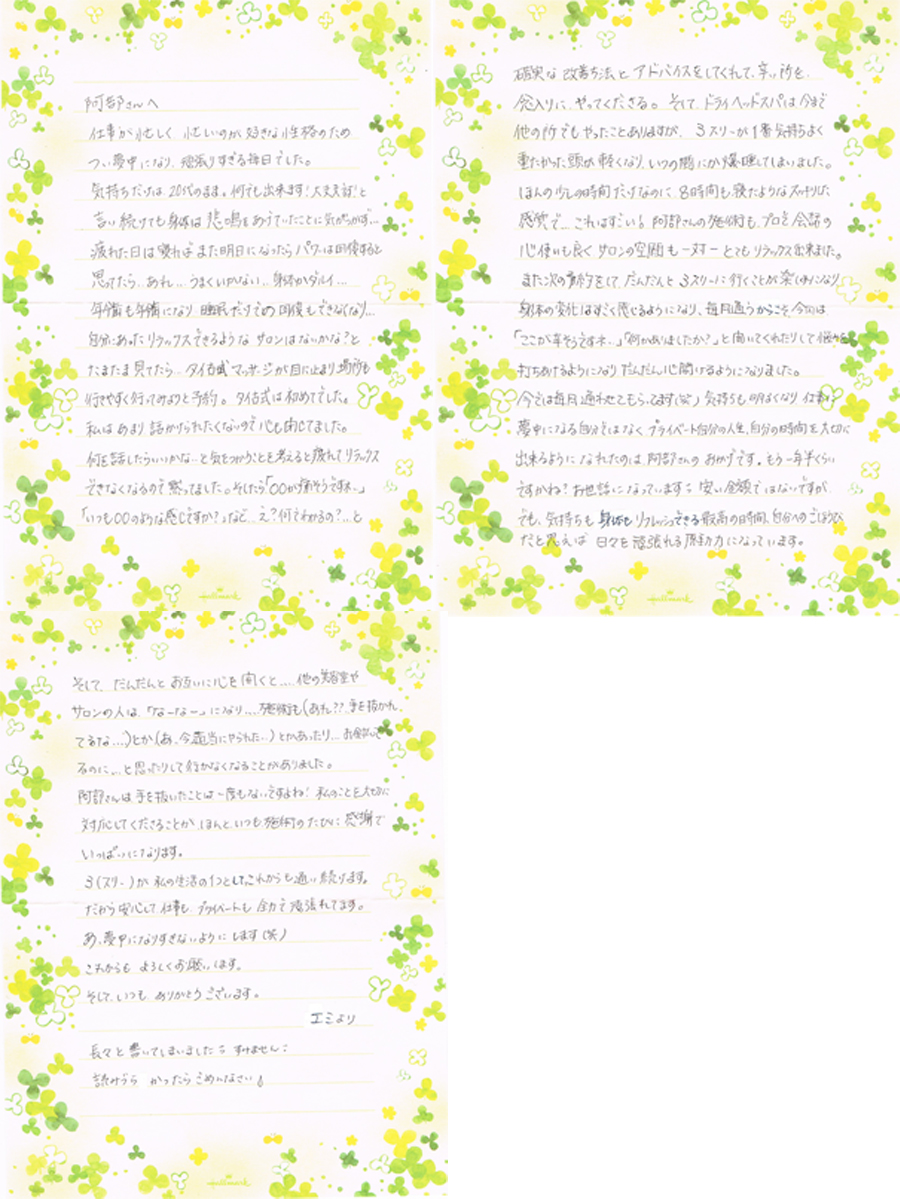 阿部さんへ
仕事が忙しく 忙しいのが好きな性格のため
つい夢中になり、頑張りすぎる毎日でした。
気持ちだけは、20代のまま。何でも出来ます!大丈夫!と
言い続けても身体は悲鳴をあげていたことに気がつかず…
疲れた日は寝ればまた明日になったらパワーは回復すると
思ってたら、あれ…うまくいかない…身体がダルイ…
年齢も年齢になり 睡眠だけでの回復もできなくなり…
自分にあったリラックスできるような サロンはないかな?と
たまたま見てたら… タイ古式マッサージが目に止まり 場所も
行きやすく行ってみようと予約。タイ古式は初めてでした。
私はあまり 話かけられたくないので心も閉じてました。
何を話したらいいかな…と気をつかうことを考えると疲れてリラックス
できなくなるので黙ってました。そしたら「〇〇が痛そうですネ…」
「いつも〇〇のような感じですか?」など… え?何でわかるの?…と
確実な 改善方法と アドバイスをしてくれて、辛い所を
念入りに、やってくださる。そして、ドライヘッドスパは今まで
他の所でもやったことありますが、 3スリーが1番気持ちよく
重たかった頭が軽くなり、いつの間にか爆睡してしまいました。
ほんの少しの時間だけなのに、8時間も寝たようなスッキリした
感覚で…これはすごい!阿部さんの施術も、プロと会話の
心使いも良く サロンの空間も一対一 とてもリラックス出来ました。
また次の予約をして、だんだんと 3スリーに行くことが楽しみになり
身体の変化はすごく感じるようになり、毎月通うからこそ今回は
「ここが辛そうですネ…」「何かありましたか?」と聞いてくれたりして悩みを
打ちあけるようになり だんだん心開けるようになりました。
今では毎月通わせてもらってます(笑) 気持ちも明るくなり 仕事に
夢中になる自分ではなく プライベート自分の人生、自分の時間を大切に
出来るように なれたのは、阿部さんの おかげです。もう一年半くらい
ですかね?お世話になっています 安い金額ではないですが
でも、気持ちも 身体も リフレッシュできる 最高の時間、自分へのごほうび
だと思えば 日々を頑張れる 原動力になっています。
Hallmark
Hallmark
そして、だんだんと お互いに心を 開くと.... 他の美容室や
サロンの人は、「なーなー」になり... 施術も(あれ??手を抜かれ
てるな…)とか(あ、今適当にやられた…)とかあったり… お金払って
るのに…と思ったりして行かなくなることがありました。
阿部さんは 手を抜いたことは一度もないですよね! 私のことを大切に
対応してくださることが、ほんと、いつも 施術のたびに 感謝で
いっぱいになります。
3(スリー)が 私の生活の1つとして、これからも通い続けます。
だから安心して 仕事も、プライベートも 全力で頑張れてます。
あ、夢中になりすぎないように します(笑)
これからも よろしくお願いします。
そして、いつも ありがとうございます。
エミより
長々と書いてしまいました すみません
読みづらかったら ごめんなさい
Hallmark